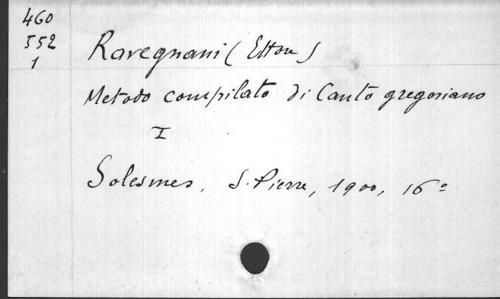 460
552
1
Ravegnani (Ettore)
Metodo compilato di Canto gregoriano
I
Solesmes, S. Pierre, 1900, 16º